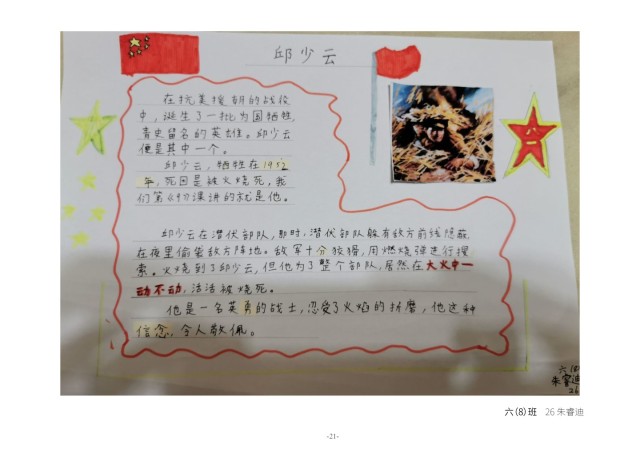 邱少云
在抗美援朝的战役
中，诞生了一批为国牺牲，
青史留名的英雄。邱少云
便是其中一个。
邱少云，牺牲在1952
年，死因是被火烧死，我
们第《9》课讲的就是他。
邱少云在潜伏部队，那时，潜伏部队躲有敌方前线隐蔽
在夜里偷袭敌方阵地。敌军十分狡猾，用燃烧弹进行搜
索。火烧到了邱少云，但他为了整个部队，居然在大火中一
动不动，活活被烧死。
他是一名英勇的战士，忍受了火焰的折磨，他这种
信念，令人敬佩。
六(8)
朱睿迪
26
六(8)班 26朱睿迪
-21-